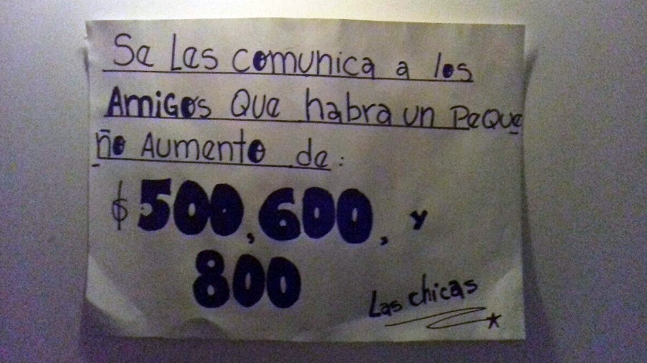 Se Les comunica a los
Amigos Que habra un Peque
ño Aumento de:
$500,600, y
800
Las chicas